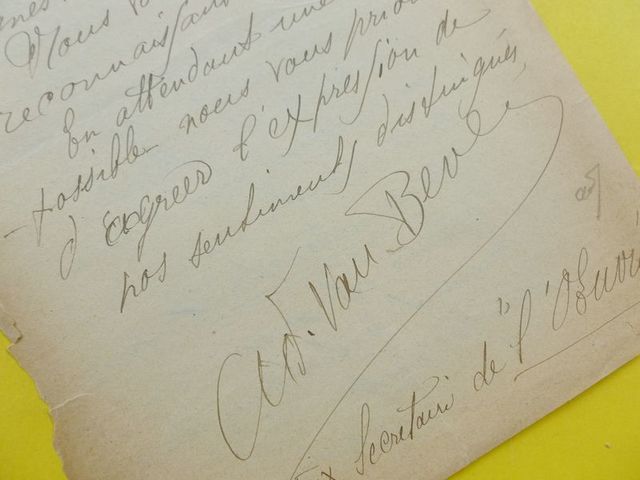 Nous vo
reconnaissan
En attendant une
possible nous vous prion
d'agréer l'expression de
nos sentiments distingués,
Ad. Van Beve
Secrétaire de "l'Œuvr